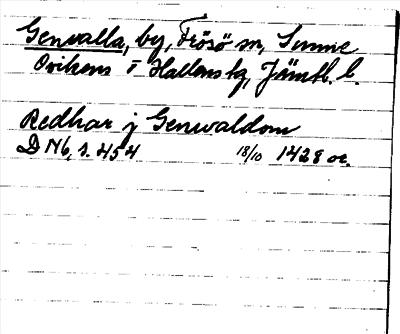 Genvalla, by, Frösö sn, Sunne
Ovikens o Hallens tg, Jämtl. l.
Redhar j Genwaldom
D N6, s. 454 18/10 1428 or.